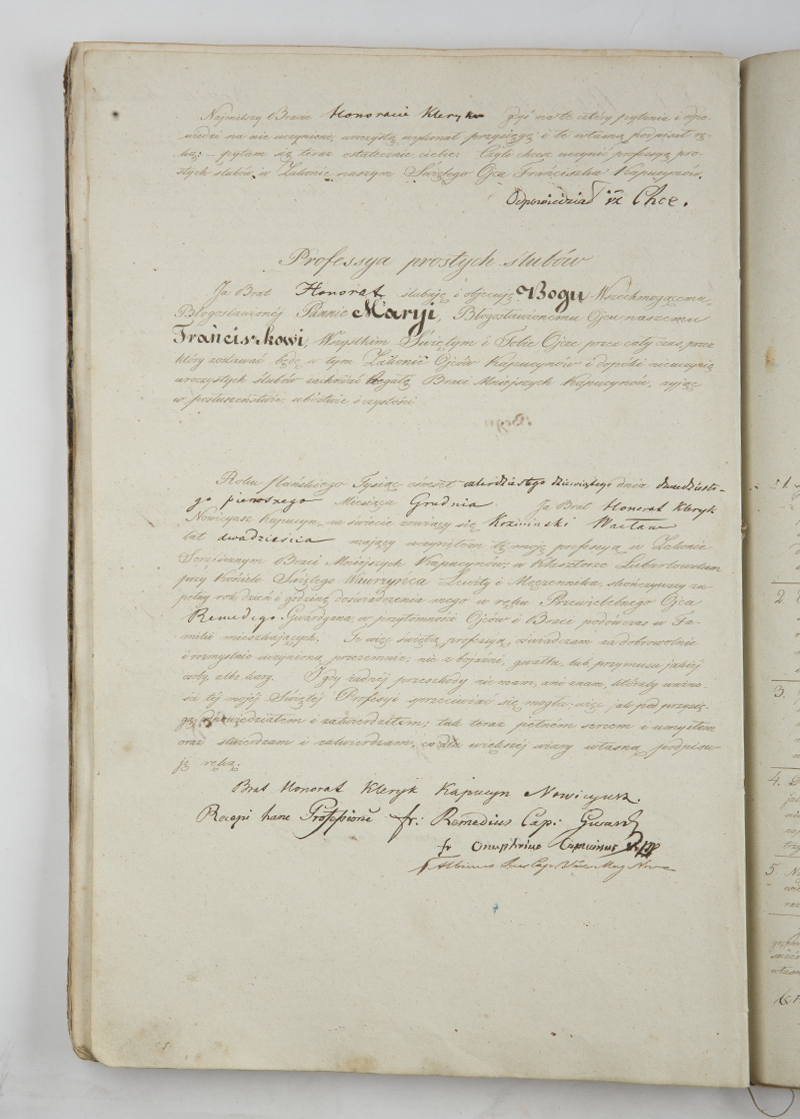 Najmilszy Bracie Honoracie Kleryku gdyś na te cztery pytania i odpo-
wiedzi na nie uczynione, uroczystą wykonał przysięgę i te własną podpisał rę-
ką: – pytam się teraz ostatecznie ciebie: Czyli chcesz uczynić professyą pro-
stych ślubów w Zakonie naszym Świętego Ojca Franciszka Kapucynów.
Odpowiedział iż Chce.
Professya prostych slubów
Ja Brat Honorat ślubuję i obiecuję Bogu Wszechmogącemu,
Błogosławionéj Pannie Maryi, Błogosławionemu Ojcu naszemu
Franciszkowi, Wszystkim Świętym i Tobie Ojcze przez cały czas, przez
który zostawać będę w tym Zakonie Ojców Kapucynów i dopóki nieuczynię
uroczystych ślubów zachować Regułę Braci Mniejszych Kapucynów, żyjąc
w posłuszeństwie, ubóstwie i czystości
Roku Pańskiego Tysiąc osiemset czterdziestego dziewiątego dnia dwudzieste-
go pierwszego Miesiąca Grudnia. Ja Brat Honorat Kleryk
Nowicyusz Kapucyn, na świecie zowiący się Koźmiński Wacław
lat dwadzieścia mający uczyniłem tę moję professyą w Zakonie
Serafickim Braci Mniejszych Kapucynów; w Klasztorze Lubartowskim
przy Kościele Świętego Wawrzyńca Lewity i Męczennika, skończywszy zu-
pełny rok dzień i godzinę doświadczenia mego w ręku Przewielebnego Ojca
Remedego Gwardyana, w przytomności Ojców i Braci podówczas w Fa-
milii mieszkających. Te więc świętą professyą, oświadczam za dobrowolnie
i rozmyślnie uczynioną przezemnie, nie z bojaźni, gwałtu, lub przymusu jakiéj
osoby, albo kary. I gdy żadnéj przeszkody nie mam, ani znam, któraby ważno-
ści téj mojéj Świętej Professyi sprzeciwiać się mogła; więc jak pod przysię-
gą odpowiedziałem i zatwierdziłem; tak teraz pełném sercem i umysłem
oraz stwierdzam i zatwierdzam, co dla większéj wiary własną podpisu-
ję ręką:
Brat Honorat Kleryk Kapucyn Nowicyusz.
Recepi hanc Professionē fr: Remedius Cap: Gward
fr Onuphrius Capucinus
f Albinus Cap. Mag Nov